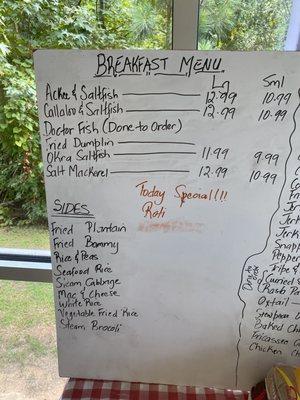 BREAKFAST MENU
L Sml
Ackee & Saltfish 12.99 10.99
Callaloo & Saltfish 12.99 10.99
Doctor Fish (Done to Order)
Fried Dumplin
Okra Saltfish 11.99 9.99
Salt Mackerel 12.99 10.99
Today Special!!!
Roti
SIDES
Fried Plantain
Fried Bammy
Rice & Peas
Seafood Rice
Steam Cabbage
Mac & Cheese
White Rice
Vegetable Fried Rice
Steam Brocoli
Jerk
Jerk
Snapp
Pepper
Curried
Oxtail
Baked Chi
Fricassee C
Chicken